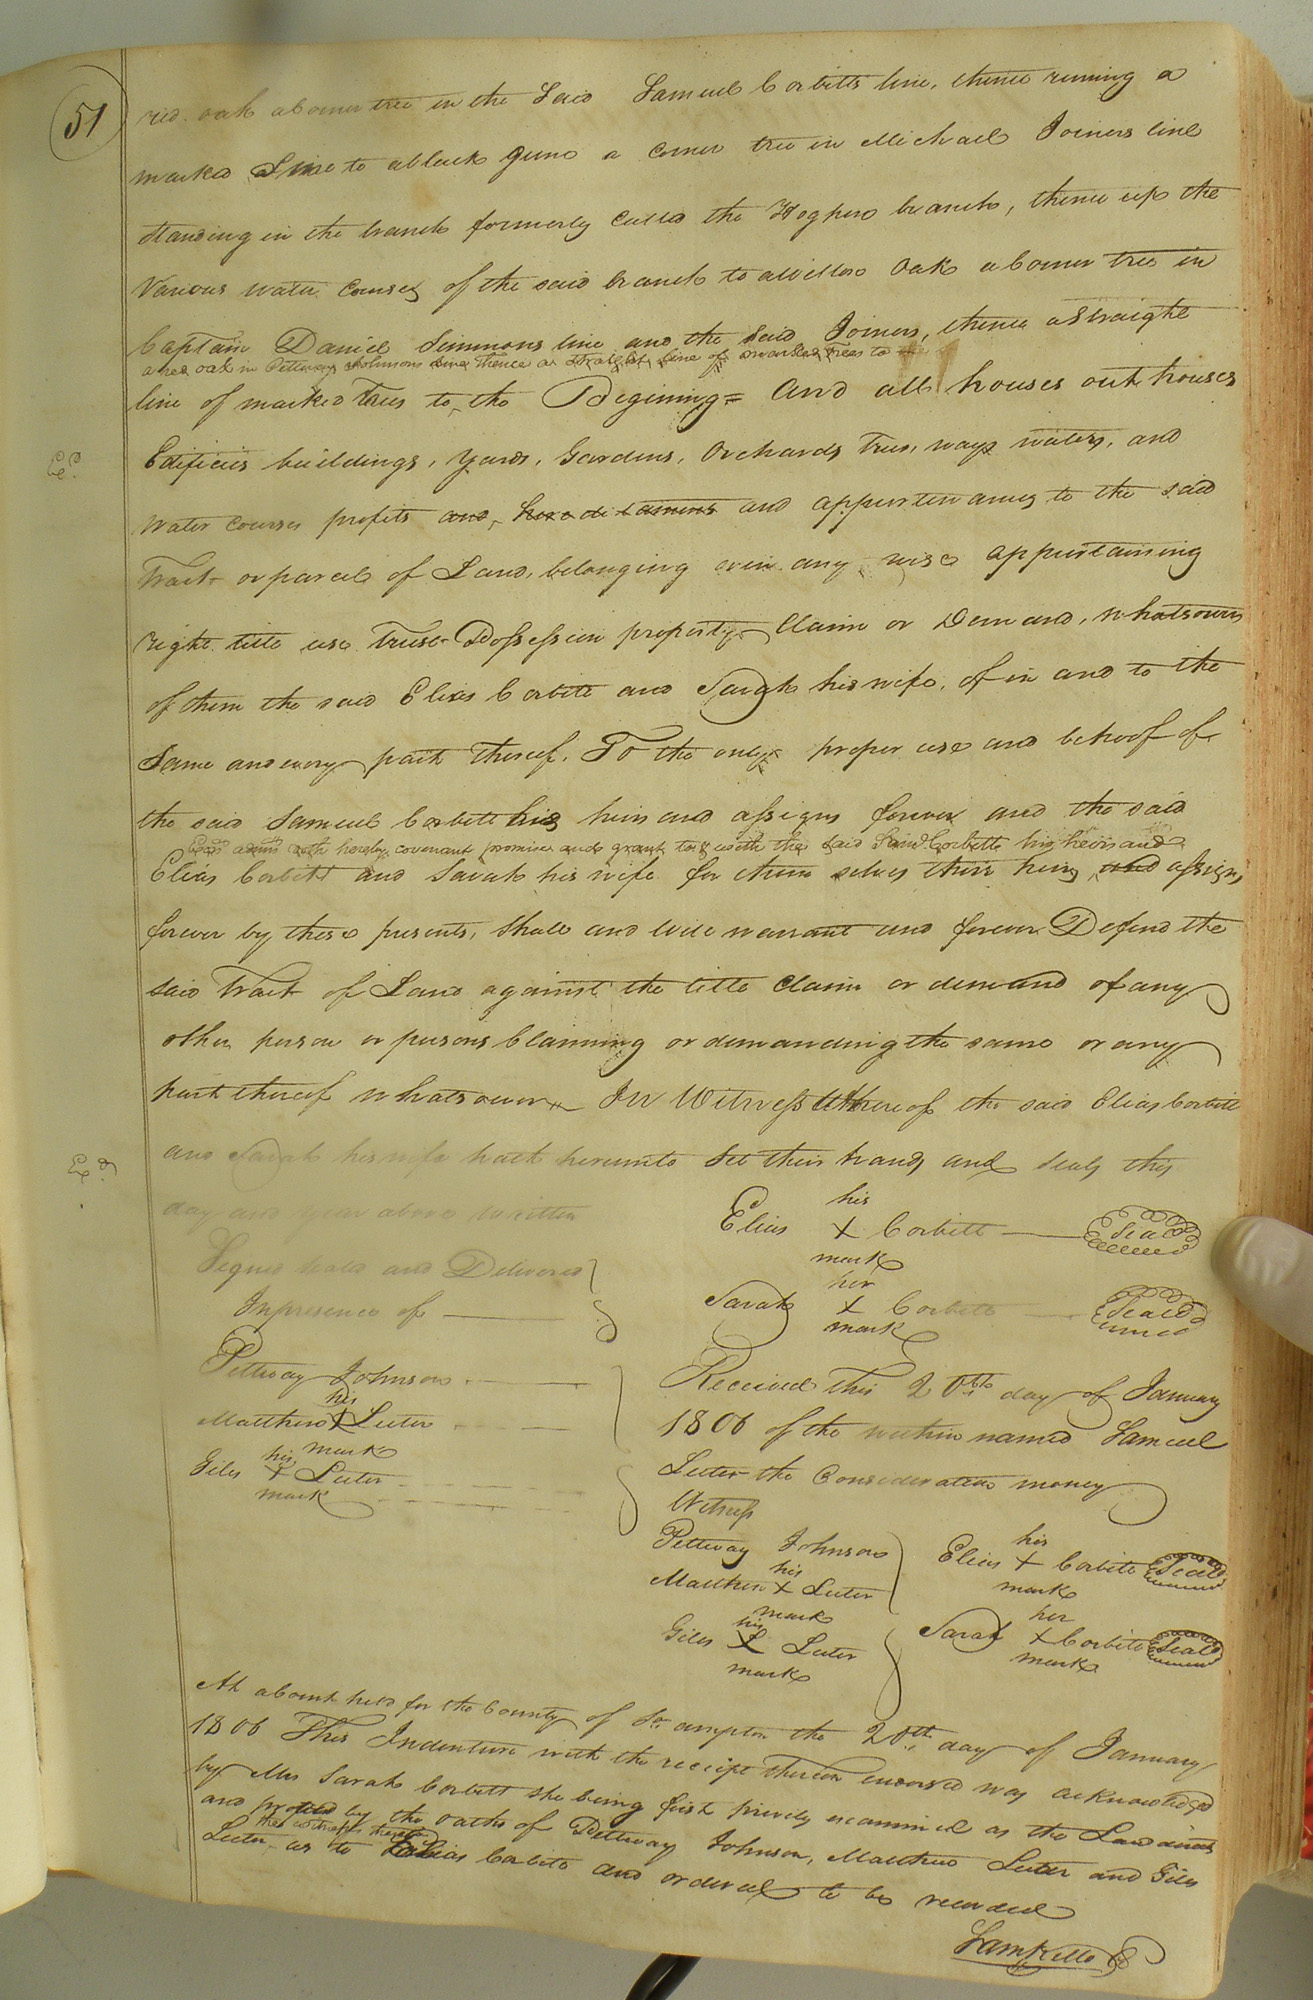 51
red oak a Corner tree in the Said Samuel Corbitts line, thence runing a
marked Line to a black gum a Corner tree in Michael Joiners line
Standing in the branch formerly Called the Hoghers branch, thence up the
Various water Courses of the said branch to a willow Oak a Corner tree in
Captain Daniel Simmons line and the said Joiners, thence a Straight
a red oak in Pettway Johnsons line thence a straight line of marked trees to the
line of marked Trees to the Begining = and all houses out houses
Edificies buildings, Yards, Gardens, Orchards Trees, ways waters, and
Ex.d
water Courses profits and, hereditaments and appurtenances to the said
Tract or parcel of Land, belonging or in any wise appurtaining
right title use Trust Possession property Claim or Demand, whatsoever
of them the said Elias Corbitt and Sarah his wife, of in and to the
Same and every part thereof. To the only proper use and behoof of
the said Samuel Corbett his heirs and assigns forever and the said
Exors admrs doth hereby covenant promise and grant to & with the said Saml Corbitt his heirs and
Elias Corbitt and Sarah his wife for them selves their heirs and assigns
forever by these presents, Shall and will warrant and forever Defend the
said Tract of Land against the title Claim or demand of any
other person or persons Claiming or demanding the same or any
part thereof whatsoever In Witness Whereof the said Elias Corbitt
and Sarah his wife hath hereunto Set their hands and Seals this
Ex.d
day and year above Written
his
Elias X Corbitt Seal
mark
Signed Seald and Delivered
Inpresence of
her
Sarah X Corbitt Seal
mark
Pettway Johnson
his
Matthew X Luter
mark
his
Giles X Luter
mark
Received this 20th day of January
1806 of the within named Samuel
Luter the Consideration money
Witness
Pettway Johnson
his
Matthew X Luter
mark
his
Giles X Luter
mark
his
Elias X Corbitt Seal
mark
her
Sarah X Corbitt Seal
mark
At a Court held for the County of So.ampton the 20th day of January
1806 This Indenture with the receipt thereon endorsed was acknowledged
by Mrs Sarah Corbitt she being first privily examined as the Law directs
and proved by the oaths of Pettway Johnson, Matthew Luter and Giles
the witnesses thereto
Luter as to Elias Corbitt and ordered to be recorded
Sam Kello C